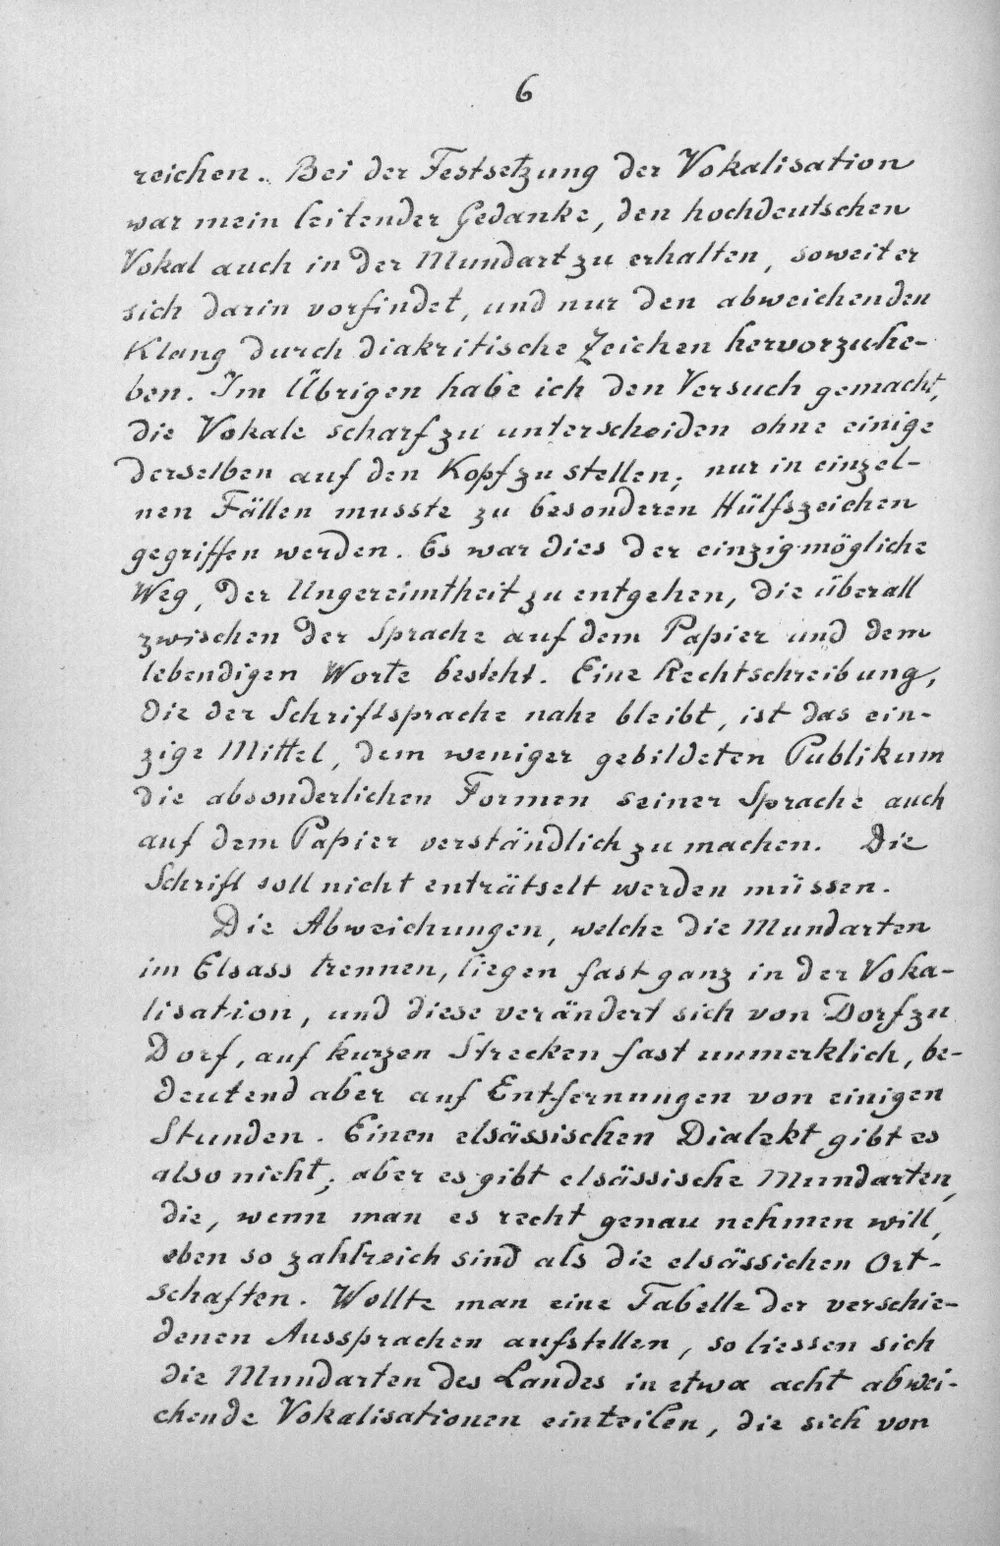 6
reichen. Bei der Festsetzung der Vokalisation
war mein leitender Gedanke, den hochdeutschen
Vokal auch in der Mundart zu erhalten, soweit er
sich darin vorfindet, und nur den abweichenden
Klang durch diakritische Zeichen hervorzuhe-
ben. Im Übrigen habe ich den Versuch gemacht,
die Vokale scharf zu unterscheiden ohne einige
derselben auf den Kopf zu stellen; nur in einzel-
nen Fällen musste zu besonderen Hülfszeichen
gegriffen werden. Es war dies der einzig mögliche
Weg, der Ungereimtheit zu entgehen, die überall
zwischen der Sprache auf dem Papier und dem
lebendigen Worte besteht. Eine Rechtschreibung,
die der Schriftsprache nahe bleibt, ist das ein-
zige Mittel, dem weniger gebildeten Publikum
die absonderlichen Formen seiner Sprache auch
auf dem Papier verständlich zu machen. Die
Schrift soll nicht enträtselt werden müssen.
Die Abweichungen, welche die Mundarten
im Elsass trennen, liegen fast ganz in der Voka-
lisation, und diese verändert sich von Dorf zu
Dorf, auf kurzen Strecken fast unmerklich, be-
deutend aber auf Entfernungen von einigen
Stunden. Einen elsässischen Dialekt gibt es
also nicht; aber es gibt elsässische Mundarten,
die, wenn man es recht genau nehmen will,
eben so zahlreich sind als die elsässichen Ort-
schaften. Wollte man eine Tabelle der verschie-
denen Aussprachen aufstellen, so liessen sich
die Mundarten des Landes in etwa acht abwei-
chende Vokalisationen einteilen, die sich von